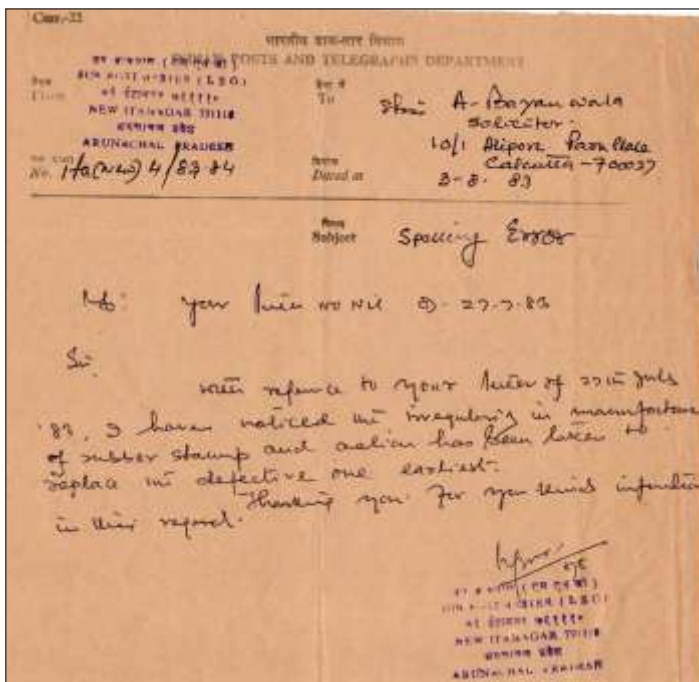 Corr.-22
भारतीय डाक-तार विभाग
INDIAN POSTS AND TELEGRAPHS DEPARTMENT
SUB POST MASTER (LSG)
NEW ITANAGAR 791110
अरुणाचल प्रदेश
ARUNACHAL PRADESH
From
To
Shri A. Bayanwala
Solicitor.
10/1 Alipore Park Place
Calcutta-700027
No. Ita(New) 4/83-84
Dated at 3-8-83
विषय
Subject Spelling Error
Ref: your letter no Nil D- 27-7-83
Sir
With refrence to your letter of 27th July
'83, I haven noticed the irregulariy in manufacture
of rubber stamp and action has been taken to
replace the defective one earliest.
Thanking you for your kind
in this regard.
SUB POST MASTER (LSG)
NEW ITANAGAR 791110
अरुणाचल प्रदेश
ARUNACHAL PRADESH